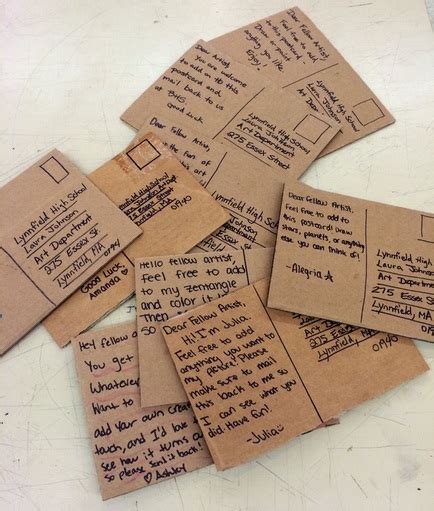 Dear Fellow Artist,
Feel free to add
to this postcard!
Draw or paint
anything you like.
Enjoy!
Lynnfield High School
Laura Johnson
Art Dear Artist,
You are welcome
to add on to this
postcard and
mail back to us
at
Good luck
Lynnfield High School
Laura Johnson
Art Department
275 Essex Street
Dear Fellow Artist,
the fun of
this art
Johnson
Department
Essex
Lynnfield High School
Laura Johnson
Art Department
275 Essex St.
Lynnfield, MA
01940
Good Luck,
Amanda
01940
Dear Fellow Artist,
Feel free to add to
this postcard! Draw
stars, planets, or anything
else you can think of!
-Alegria
Lynnfield High
Laura Johnson
Art Department
275 Essex Street
Lynnfield, MA
01940
Hello fellow artist,
feel free to add
to my zentangle
and color it
Then
so
Dear Fellow Artist,
Hi! I'm Julia.
Feel free to add
anything you want to
my picture! Please
make sure to mail
this back to me so
I can see what you
did. Have fun!
-Julia
Lynnfield High
Laura Johnson
Art Department
275 Essex St
Lynnfield,
01940
Hey fellow
You get
Whatever
want to
add your own
touch, and I'd love
see how it turns
so please send it back!
Ashley